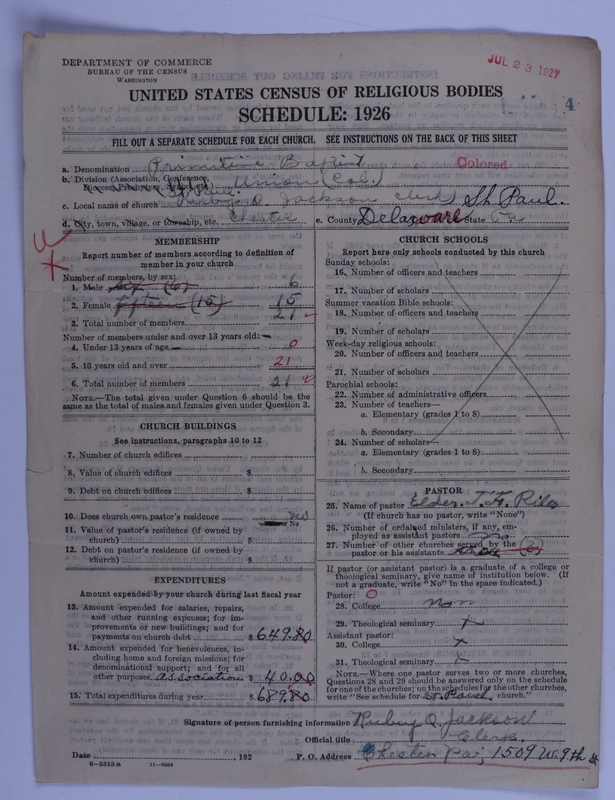 DEPARTMENT OF COMMERCE
BUREAU OF THE CENSUS
WASHINGTON
JUL 23 1927
UNITED STATES CENSUS OF RELIGIOUS BODIES
SCHEDULE: 1926
4
FILL OUT A SEPARATE SCHEDULE FOR EACH CHURCH. SEE INSTRUCTIONS ON THE BACK OF THIS SHEET
a. Denomination Primitive Baptist Colored
b. Division (Association, Conference, Diocese, Presbytery, Union (Col.)
c. Local name of church Rubye Q. Jackson clerk St. Paul.
d. City, town, village, or township, etc. Chester e. County Delaware State Pa
MEMBERSHIP
Report number of members according to definition of
member in your church
Number of members, by sex:
1. Male six (6) 6
2. Female fifteen (15) 15
3. Total number of members 21
Number of members under and over 13 years old:
4. Under 13 years of age 0
5. 13 years old and over 21
6. Total number of members 21
NOTE.—The total given under Question 6 should be
same as the total of males and females given under Question 3.
CHURCH BUILDINGS
See instructions, paragraphs 10 to 12
7. Number of church edifices
8. Value of church edifices $
9. Debt on church edifices $
10. Does church own pastor's residence no
No
11. Value of pastor's residence (if owned by
church) $
12. Debt on pastor's residence (if owned by
church) $
EXPENDITURES
Amount expended by your church during last fiscal year
13. Amount expended for salaries, repairs,
and other running expenses; for im-
provements or new buildings; and for
payments on church debt $ 649.80
14. Amount expended for benevolences, in-
cluding home and foreign missions; for
denominational support; and for all
other purposes. Association $ 40.00
15. Total expenditures during year $ 689.80
CHURCH SCHOOLS
Report here only schools conducted by this church
Sunday schools:
16. Number of officers and teachers
17. Number of scholars
Summer vacation Bible schools:
18. Number of officers and teachers
19. Number of scholars
Week-day religious schools:
20. Number of officers and teachers
21. Number of scholars
Parochial schools:
22. Number of administrative officers
23. Number of teachers—
a. Elementary (grades 1 to 8)
b. Secondary
24. Number of scholars—
a. Elementary (grades 1 to 8)
b. Secondary
PASTOR
25. Name of pastor Elder. T. F. Riley
(If church has no pastor, write "None")
26. Number of ordained ministers, if any, em-
ployed as assistant pastors No
27. Number of other churches served by the
pastor or his assistants
If pastor (or assistant pastor) is a graduate of a college or
theological seminary, give name of institution below. (If
not a graduate, write "No" in the space indicated.)
Pastor: 0
28. College
29. Theological seminary x
Assistant pastor:
30. College x
31. Theological seminary x
NOTE.—Where one pastor serves two or more churches,
Questions 28 and 29 should be answered only on the schedule
for one of the churches; on the schedules for the other churches,
write "See schedule for St. Paul church."
Signature of person furnishing information Rubye Q. Jackson
Official title Clerk
Date 192 P. O. Address Chester Pa, 1509 W. 9th St
8—5518a 11—9604